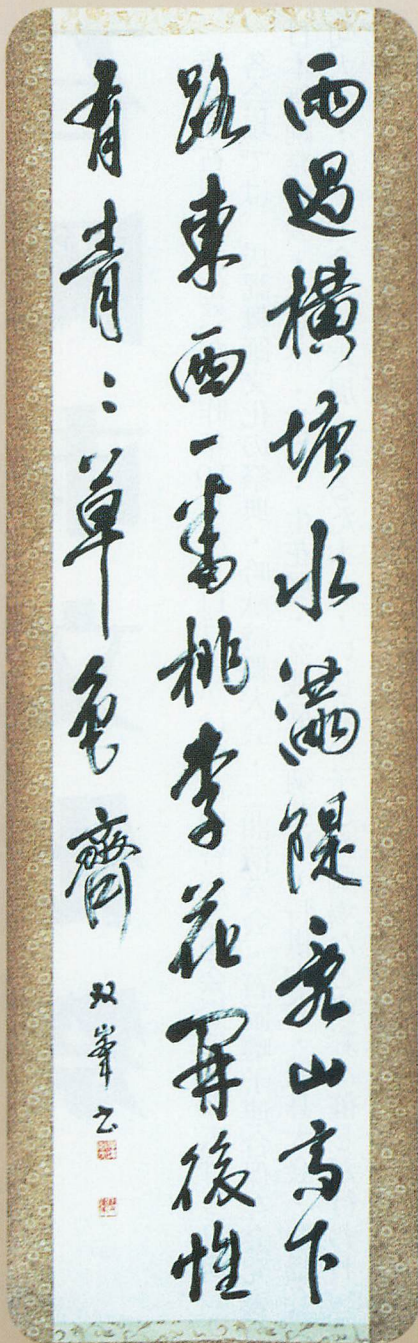 雨過橫塘水滿隄亂山高下
路東西一番桃李花開後惟
有青〻草色齊
双峯書